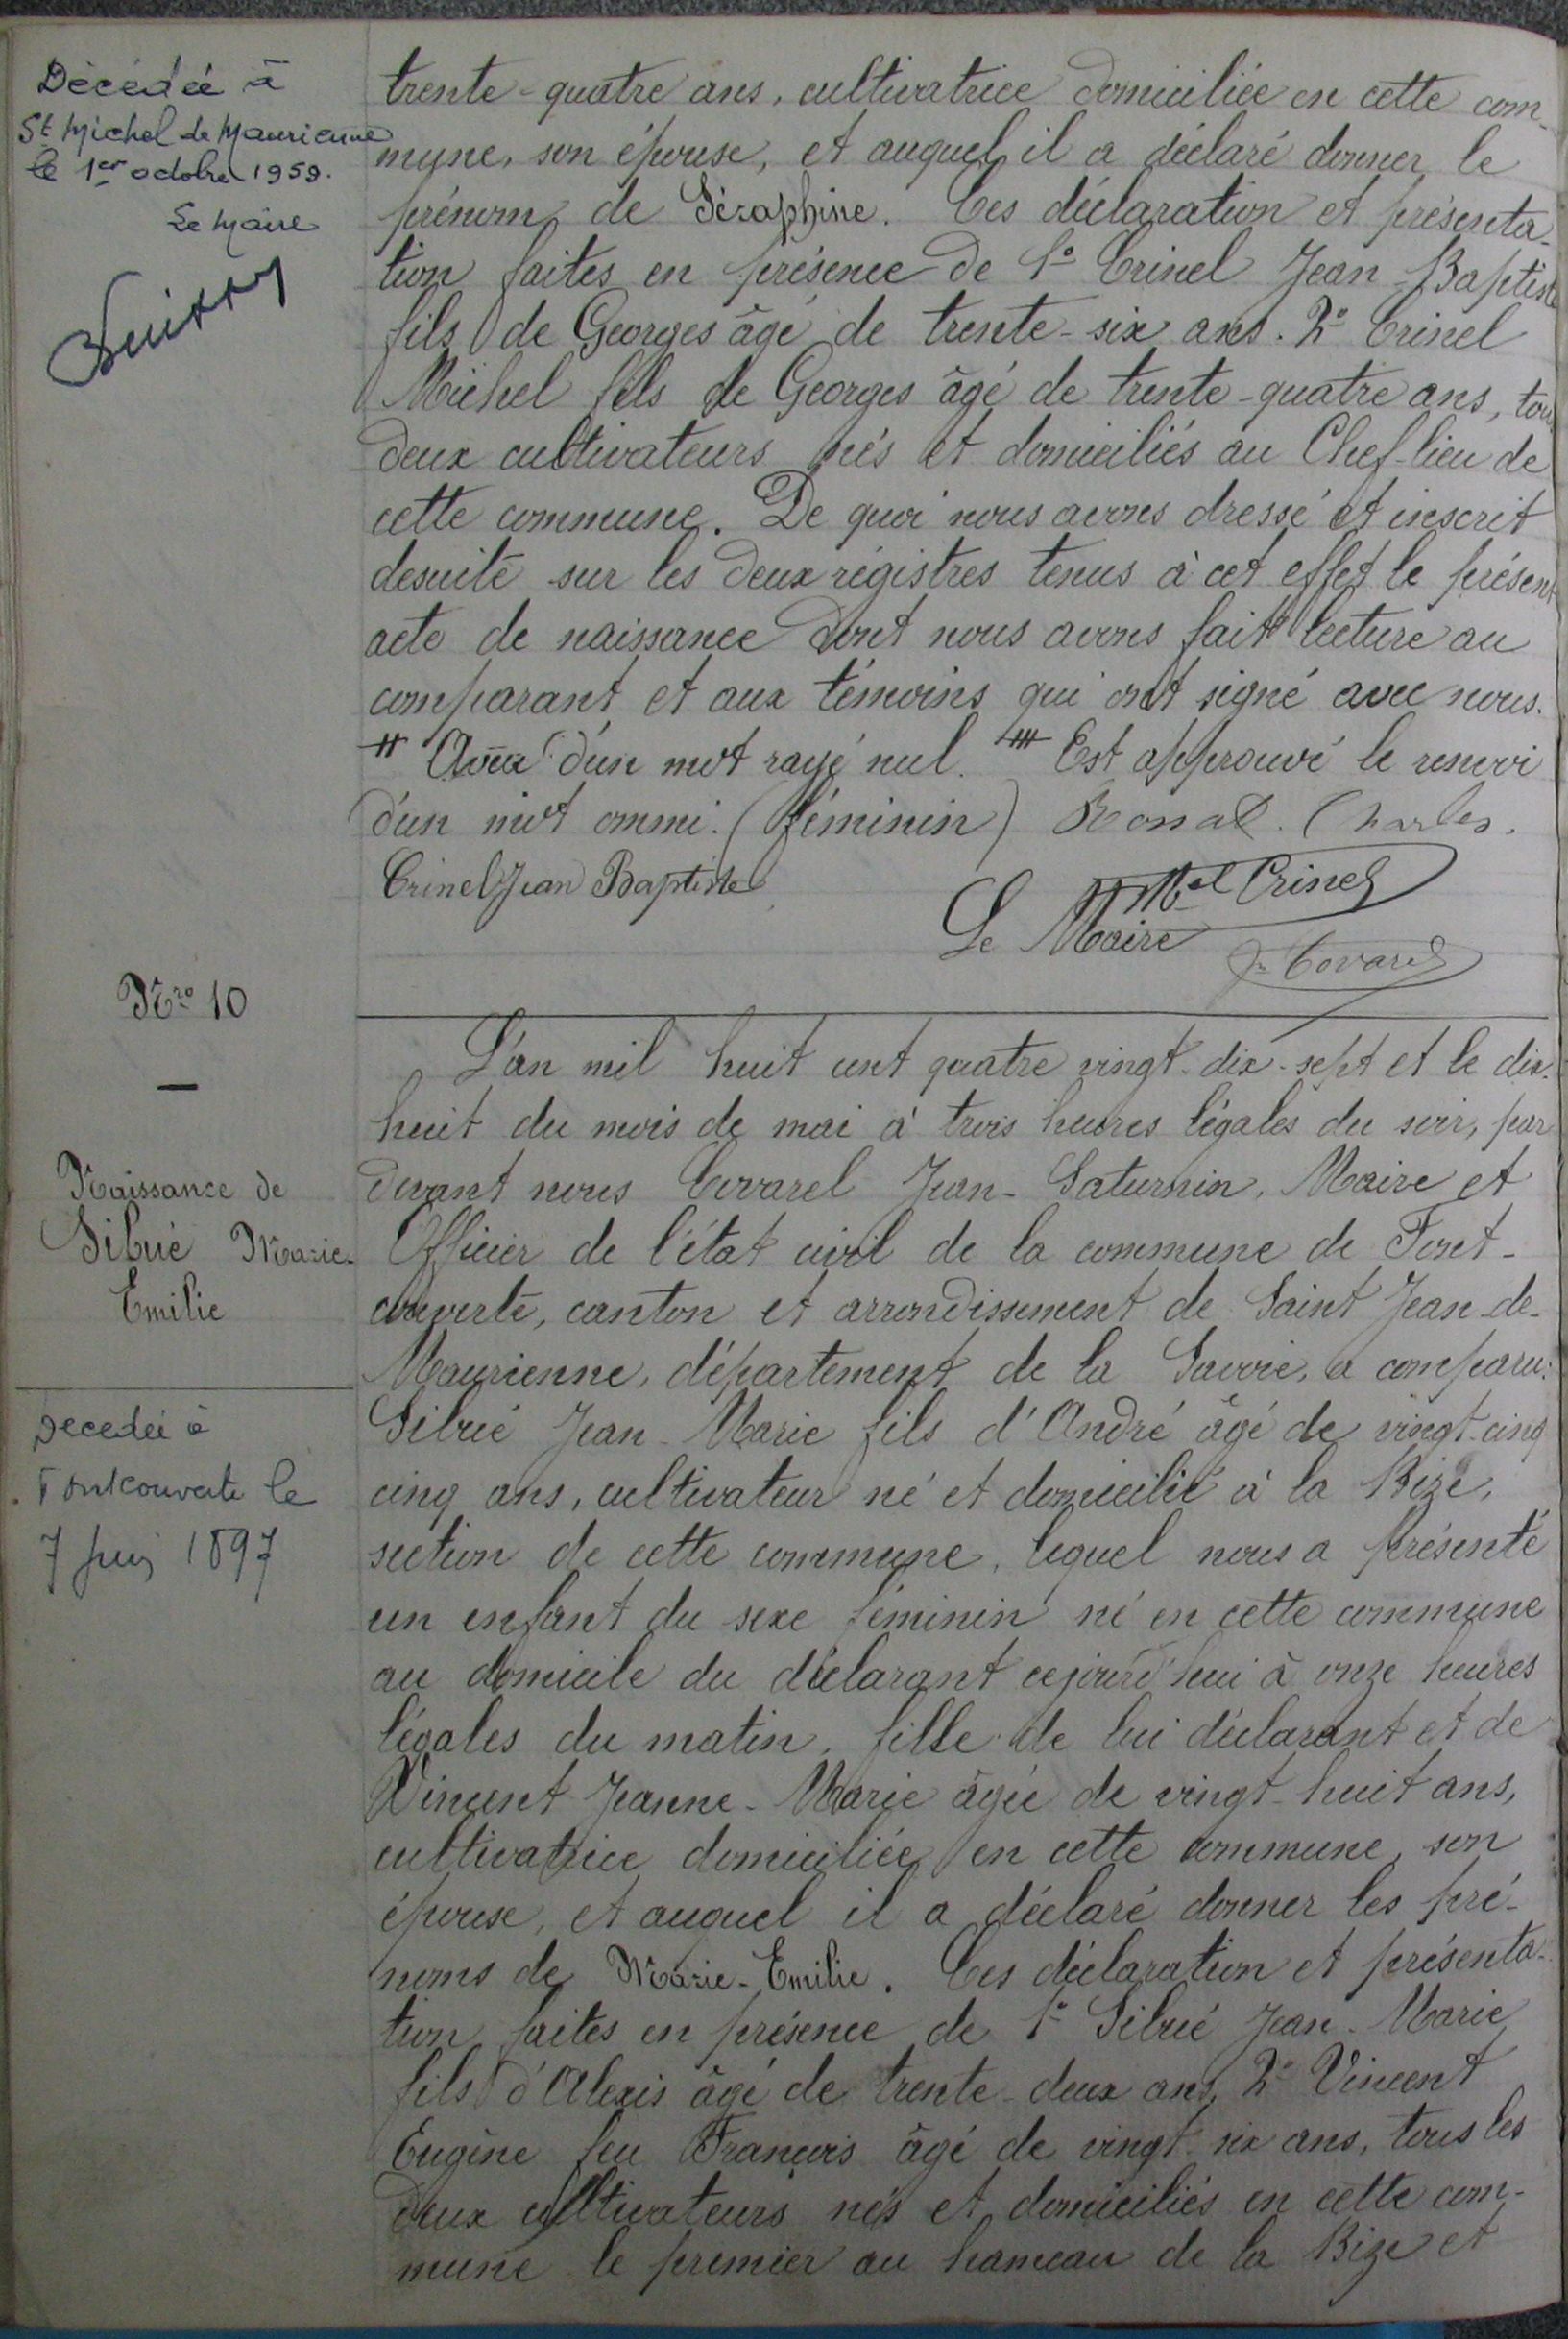 Décédée à
St Michel de Maurienne
le 1er octobre 1959.
Le Maire
trente-quatre ans, cultivatrice domiciliée en cette com-
mune, son épouse, et auquel il a déclaré donner le
prénom de Séraphine. Ces déclaration et présenta-
tion faites en présence de 1° Crinel Jean-Baptiste
fils de Georges âgé de trente-six ans. 2° Crinel
Michel fils de Georges âgé de trente-quatre ans, tous
deux cultivateurs nés et domiciliés au Chef-lieu de
cette commune. De quoi nous avons dressé et inscrit
desuite sur les deux régistres tenus à cet effet le présent
acte de naissance dont nous avons fait lecture au
comparant et aux témoins qui ont signé avec nous.
d'un mot rayé nul. Est approuvé le renvoi
d'un mot ommi. (féminin) Charles.
Crinel Jean Baptiste
Mel Crinel
Le Maire
Covarel
Nro 10
Naissance de
Sibué Marie-
Emilie
Decedée à
Fontcouverte le
7 juin 1897
L'an mil huit cent quatre vingt-dix-sept et le dix-
huit du mois de mai à trois heures légales du soir, par
devant nous Covarel Jean-Saturnin, Maire et
Officier de l'état civil de la commune de Font-
couverte, canton et arrondissement de Saint Jean-de-
Maurienne, département de la Savoie, a comparu:
Sibué Jean-Marie fils d'André âgé de vingt-cinq
cinq ans, cultivateur né et domicilié à la Bize,
section de cette commune, lequel nous a présenté
un enfant du sexe féminin né en cette commune
au domicile du déclarant cejourd'hui à onze heures
légales du matin, fille de lui déclarant et de
Vincent Jeanne-Marie âgée de vingt-huit ans,
cultivatrice domiciliée en cette commune, son
épouse, et auquel il a déclaré donner les pré-
noms de Marie-Emilie. Ces déclaration et présenta-
tion faites en présence de 1° Sibué Jean-Marie
fils d'Alexis âgé de trente-deux ans, 2° Vincent
Eugène feu François âgé de vingt-six ans, tous les
deux cultivateurs nés et domiciliés en cette com-
mune le premier au hameau de la Bize et